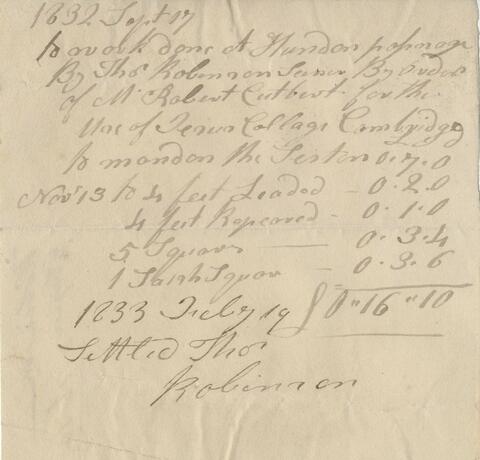 1832 Sept 17
to work done at Hundon
By Thos Robinson Senr By order
of Mr Robert Cutbert for the
Use of Jesus Collage Cambridge
to mendon the Sistern 0.7.0
Novr 13 to 4 feet Leaded - 0.2.0
4 feet Repeared - 0.1.0
5 Squares — 0.3.4
1 Sarsh Squar - 0.3.6
1833 Feby 19 £0"16"10
Settled Thos
Robinson